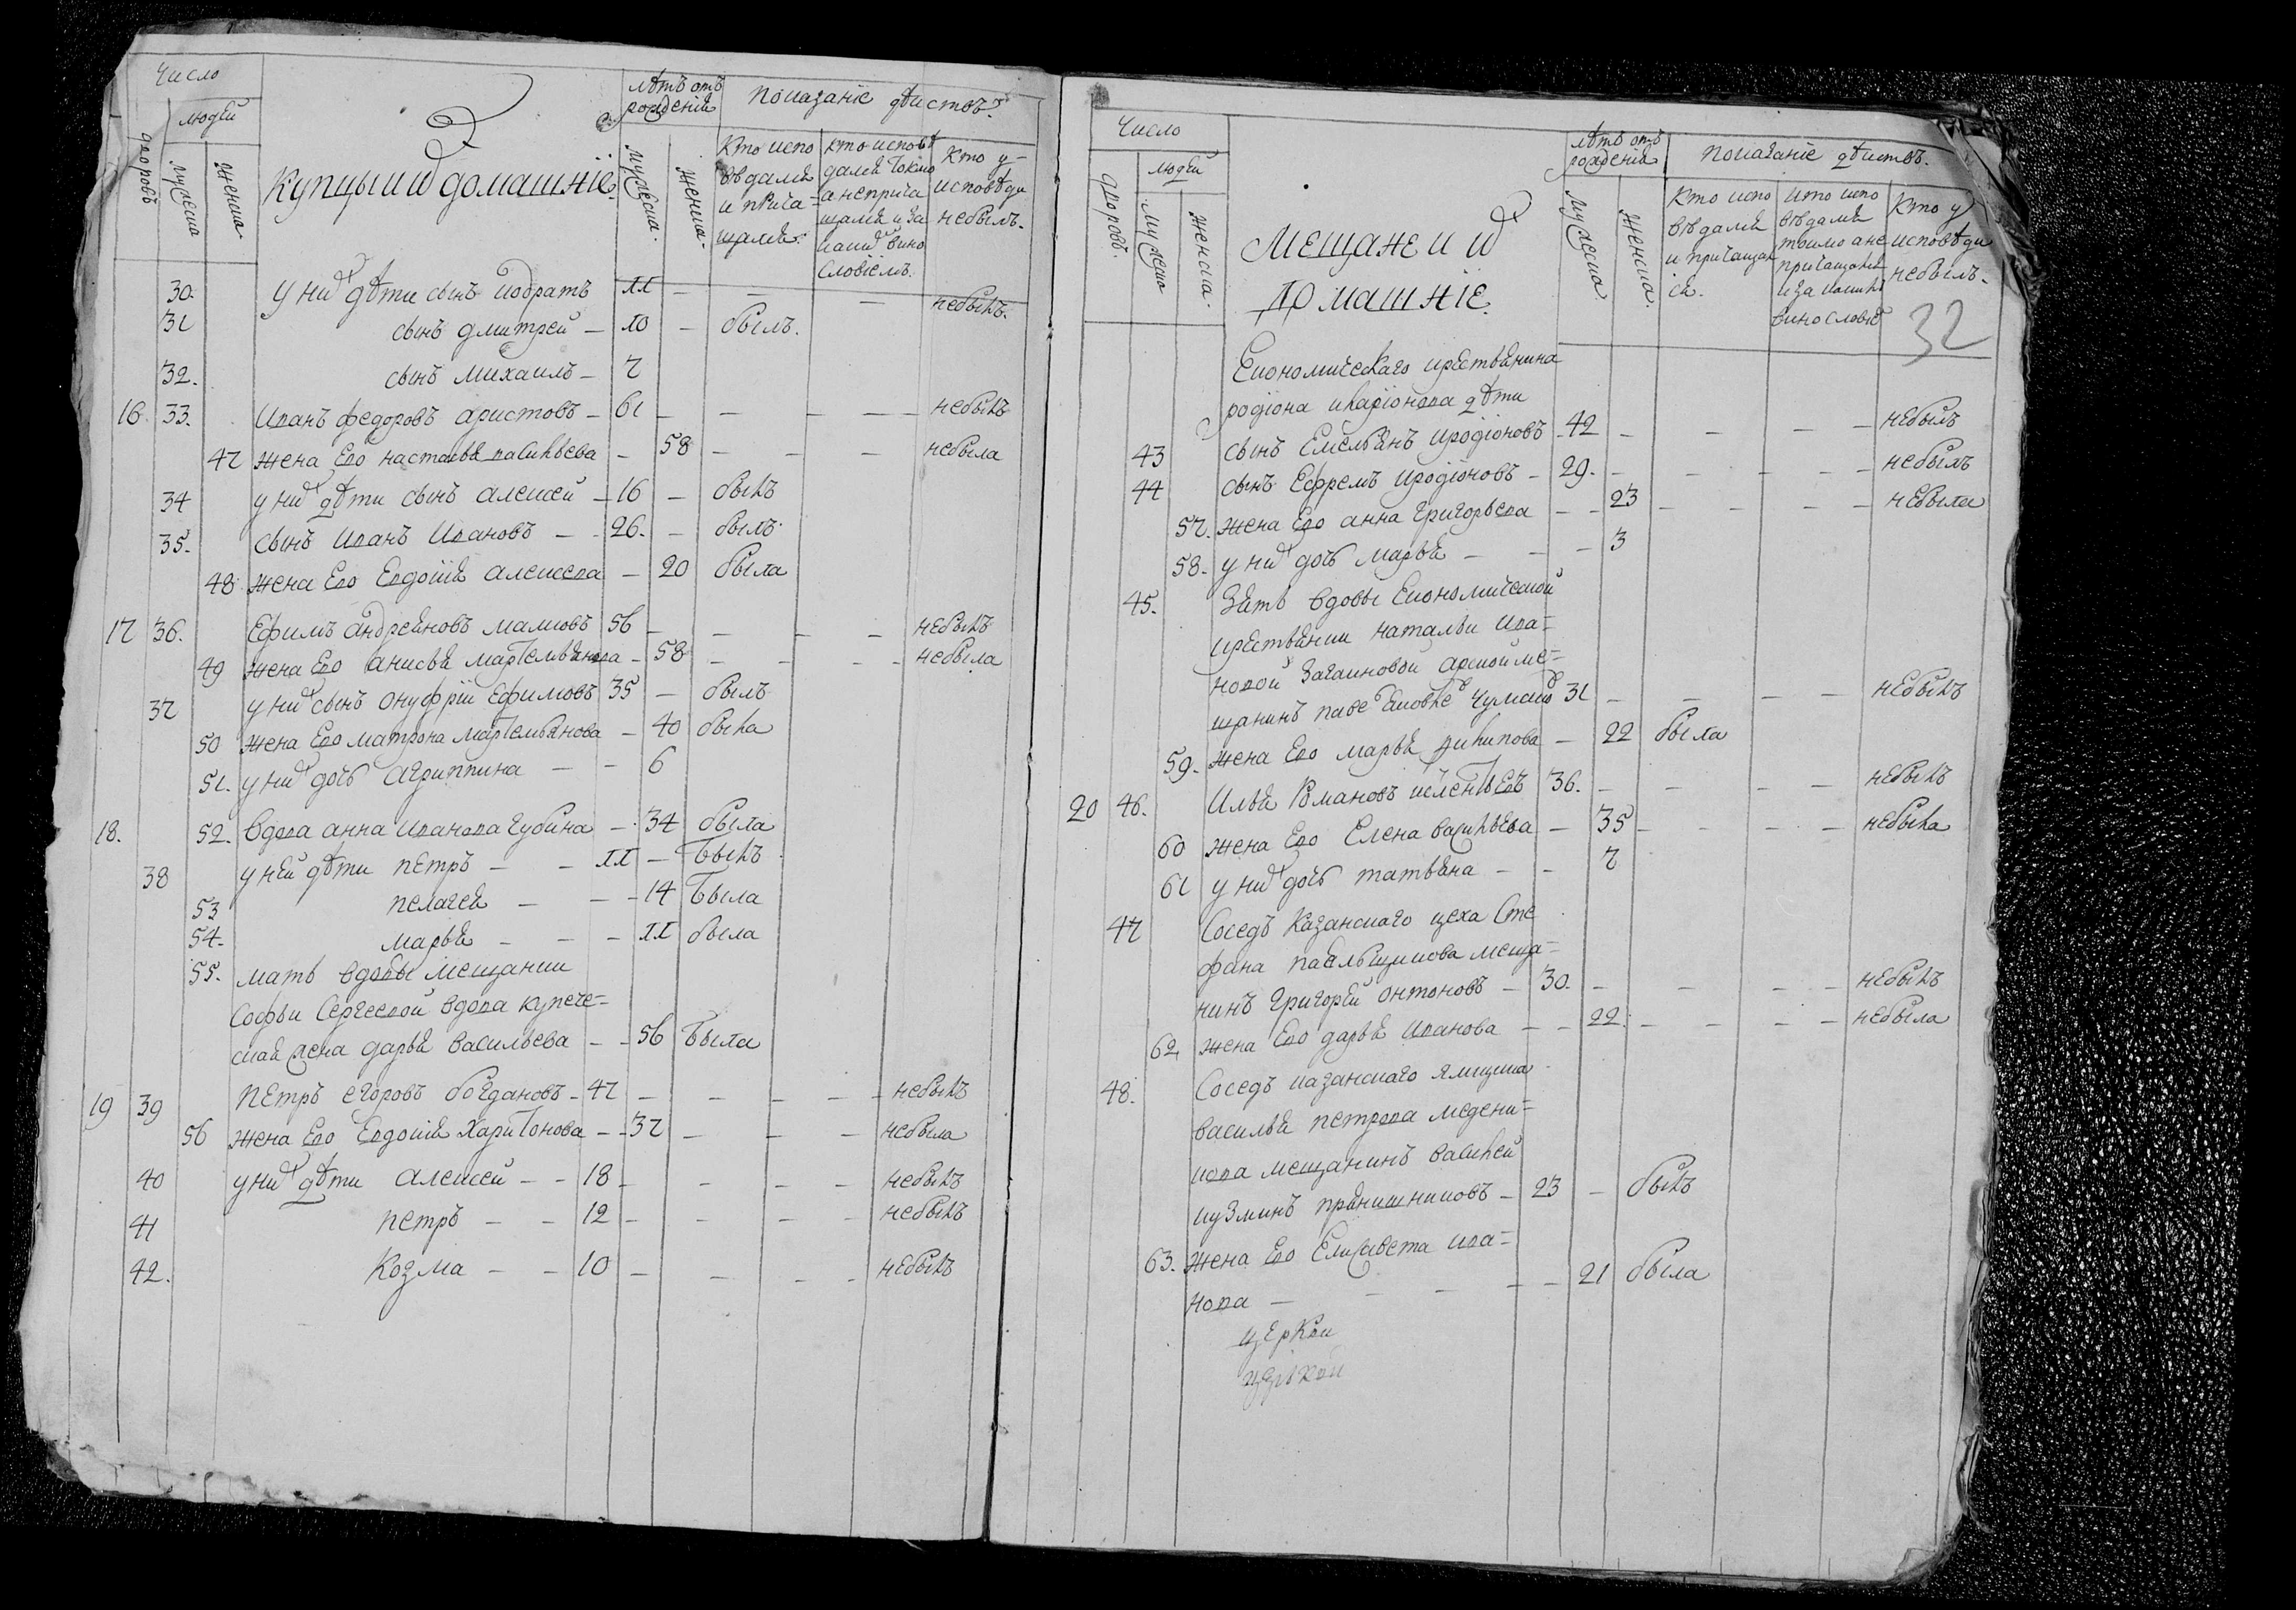 Число
людей
дворовъ
мужеска
женска
Купцы и ихъ домашнїе.
лѣтъ отъ рожденія
мужеска.
женска.
Показаніе дѣйствъ.
Кто испо вѣдался и прича= щался.
кто исповѣ дался токмо а неприча щался и за какимъ вино словіемъ.
Кто у= исповѣди небылъ.
30. у нихъ дѣти сынъ Кодратъ 11 — — — небылъ.
31 сынъ дмитрей — 10 — былъ.
32. сынъ михаилъ — 7
16 33. Иванъ федоровъ аристовъ — 61 — — — — небылъ
47 жена Его настасья васильева — 58 — — — небыла
34 у нихъ дѣти сынъ алексей — 16 — былъ
35. сынъ Иванъ Ивановъ — 26. — былъ
48 жена Его Евдокія алексеева — 20 была
17 36. Ефимъ андреяновъ малковъ 56 — — — — небылъ
49 жена Его анисья мартемьянова — 58 — — — небыла
37 у нихъ сынъ онуфрій Ефимовъ 35 — былъ
50 жена Его матрона мартемьянова — 40 была
51. у нихъ дочь агриппина — — 6
18. 52. вдова анна Иванова губина — 34 была
38 у ней дѣти петръ — — 11 — былъ
53 пелагея — — 14 была
54. марья — — — 11 была
55. мать вдовы мещанки
Софьи Сергеевой вдова купече=
ская жена дарья васильева — — 56 была
19 39 петръ егоровъ богдановъ — 47 — — — — небылъ
56 жена Его Евдокія Харитонова — — 37 — — — небыла
40 у нихъ дѣти алексей — — 18 — — — — небылъ
41 петръ — — 12 — — — — небылъ
42. Козма — — 10 — — — — небылъ
Число
людей
дворовъ.
мужеска
женска.
Мещане и ихъ
домашнїе.
лѣтъ отъ рожденія
мужеска.
женска.
показаніе дѣйствъ.
Кто испо вѣдался и причащал ся.
кто испо вѣдался токмо а не причащался и за какимъ винословіе
Кто у исповѣди небылъ.
32
Економическаго крестьянина
родіона иларіонова дѣти
43 сынъ Емельянъ иродіоновъ — 42 — — — — небылъ
44 сынъ Ефремъ иродіоновъ — 29. — — — — небылъ
57. жена Его анна григорьева — — 23 — — — — небыла
58. у нихъ дочь марья — — — 3
45. Зять вдовы Економической
крестьянки натальи ива=
новой арской ме=
щанинъ 31 — — — — небылъ
59. жена Его марья филипова — 22 была
20 46. Илья Романовъ 36. — — — — небылъ
60 жена Его Елена васильева — 35 — — — — небыла
61 у нихъ дочь татьяна — — 7
47 Соседъ Казанскаго цеха Сте
фана меща=
нинъ григорей онтоновъ — 30. — — — — небылъ
62 жена Его дарья Иванова — — 22. — — — — небыла
48. Соседъ казанскаго ямщика
василья петрова медени=
кова мещанинъ василей
кузминъ пряничниковъ — 23 — былъ
63. жена Его Елисавета ива=
нова — — — — — 21 была
церкви